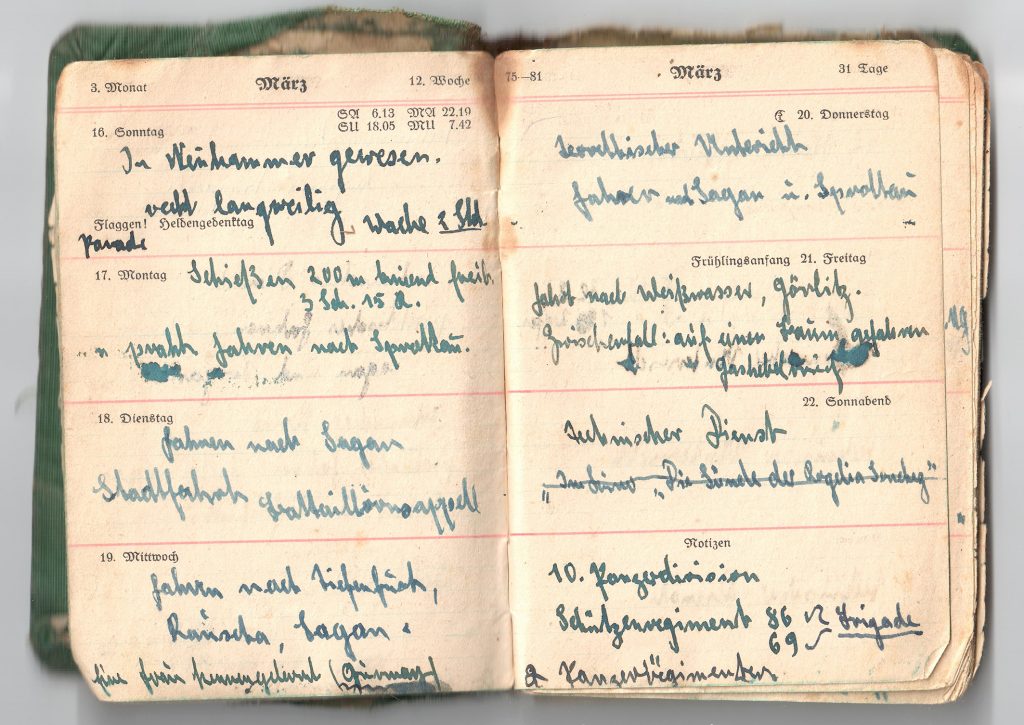 3. Monat März 12. Woche
SA 6.13 MA 22.19
SU 18.05 MU 7.42
16. Sonntag
In Neuhammer gewesen.
recht langweilig
Flaggen! Heldengedenktag
Wache 2 Std.
Parade
17. Montag
Schießen 200 m kniend freih.
3 Sch. 15 R.
prakt. Fahren nach Sprottau.
18. Dienstag
Fahren nach Sagan
Stadtfahrt Battaillonsappell
19. Mittwoch
Fahren nach Tiefenfurt,
Rauscha, Sagan.
Eine Frau kennengelernt
75—81 März 31 Tage
20. Donnerstag
Theoretischer Unterricht
Fahren nach Sagan u. Sprottau
Frühlingsanfang 21. Freitag
Fahrt nach Weißwasser, Görlitz.
Zwischenfall: auf einen Baum gefahren
Gashebel
22. Sonnabend
Technischer Dienst
Im Kino "Die Sünde der Rogelia Sanchez"
Notizen
10. Panzerdivision
Schützenregiment 86
69 Brigade
2 Panzerregimenter